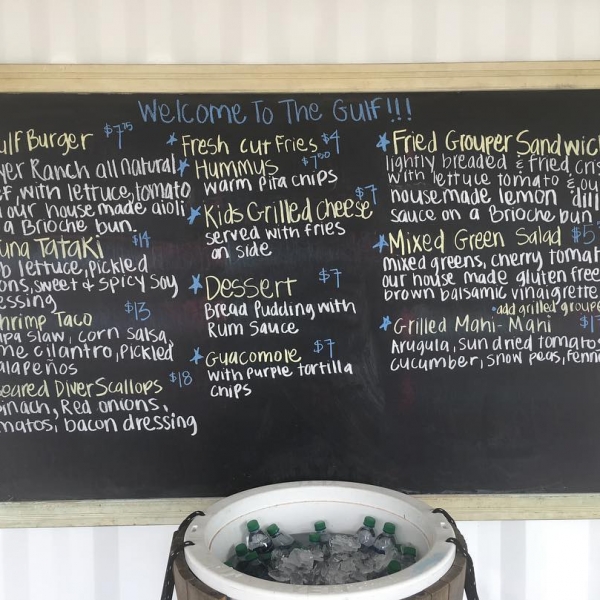 Welcome To The Gulf!!!
ulf Burger $7.75
yer Ranch all natural
ef, with lettuce, tomato
our house made aioli
a Brioche bun.
una Tataki $14
b lettuce, pickled
ons, sweet & spicy soy
essing
hrimp Taco $13
apa slaw, corn salsa,
me cilantro, pickled
alapeños
eared Diver Scallops $18
inach, Red onions,
matos, bacon dressing
Fresh cut Fries $4
Hummus $7.00
warm pita chips
Kids Grilled cheese $7
served with fries
on side
Dessert $7
Bread Pudding with
Rum Sauce
Guacamole $7
with purple tortilla
chips
Fried Grouper Sandwich
lightly breaded & fried, cris
with lettuce tomato & ou
housemade lemon dill
sauce on a Brioche bun
Mixed Green Salad $5
mixed greens, cherry tomat
our house made gluten free
brown balsamic vinaigrette
add grilled groupe
Grilled Mahi-Mahi $1
Arugula, sundried tomatos
cucumber, snow peas, fenne